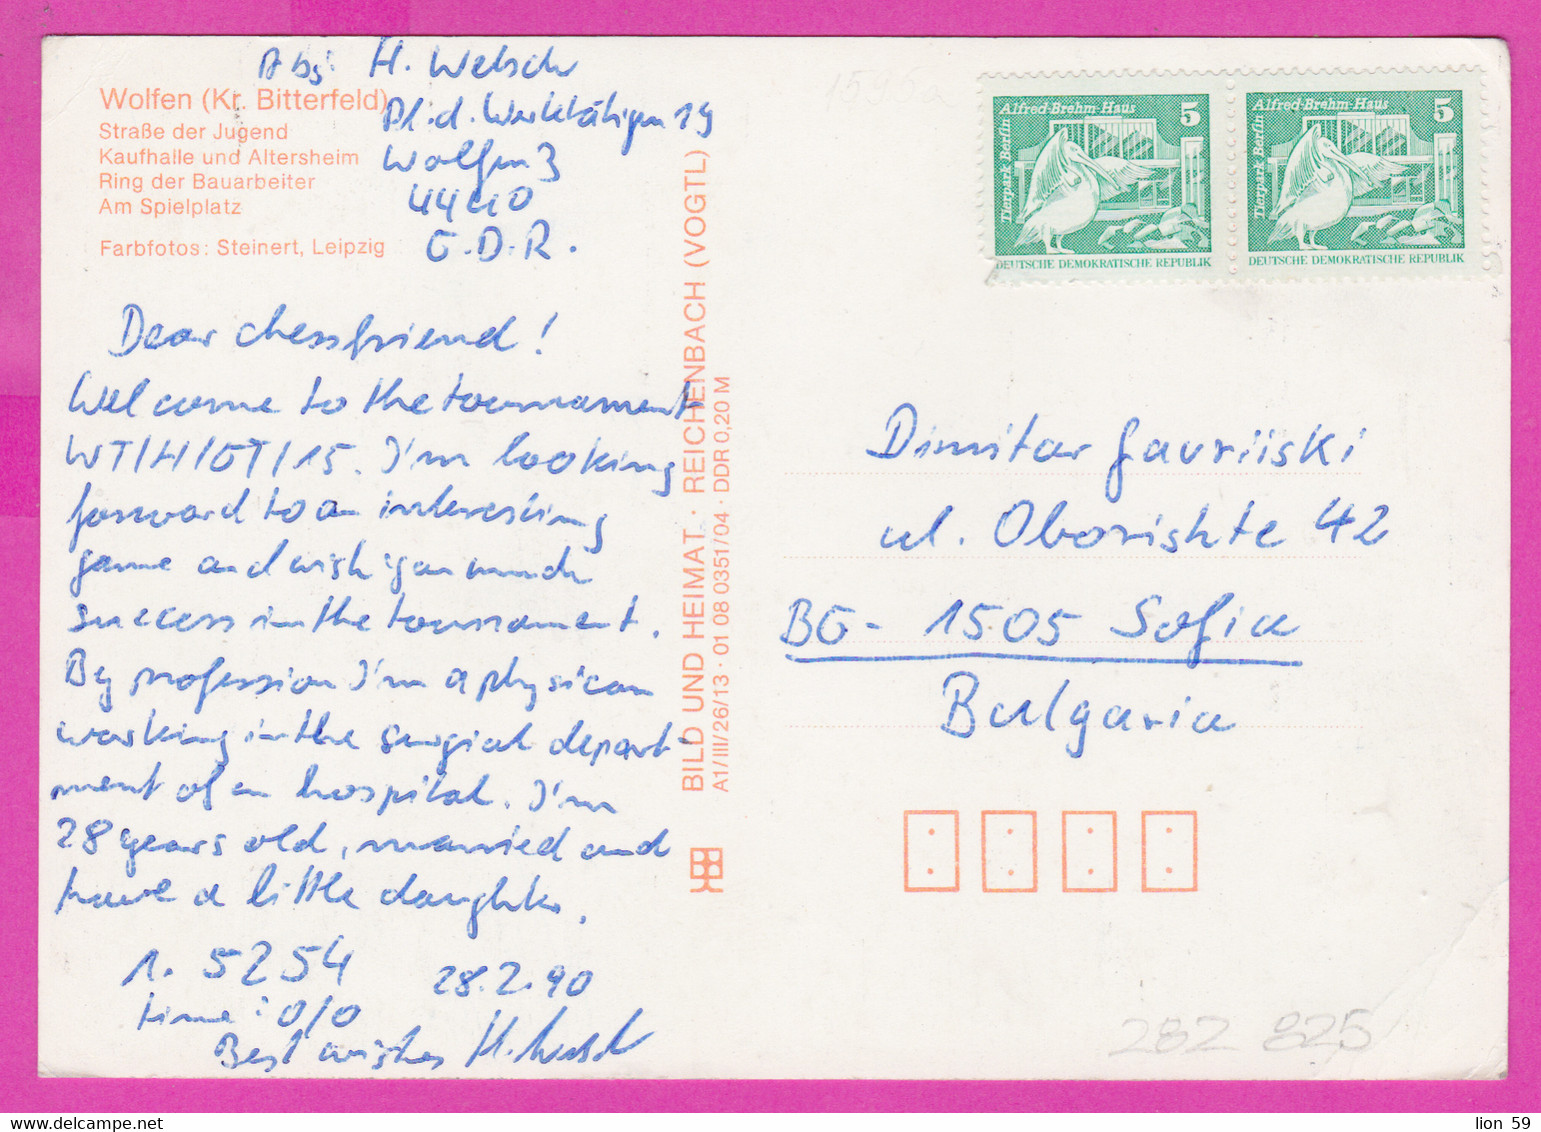 Abs: H. Welsch
Pl. d. Werktätigen 19
Wolfen 3
4440
G.D.R.
Wolfen (Kr. Bitterfeld)
Straße der Jugend
Kaufhalle und Altersheim
Ring der Bauarbeiter
Am Spielplatz
Farbfotos: Steinert, Leipzig
Dear chessfriend!
Welcome to the tournament
WT/H/GT/15. I'm looking
forward to an interesting
game and wish you much
success in the tournament.
By profession I'm a physican
working in the surgical depart-
ment of an hospital. I'm
28 years old, married and
have a little daughter.
1. 5254 28.2.90
time: 0/0
Best wishes H. Welsch
BILD UND HEIMAT · REICHENBACH (VOGTL)
A1/III/26/13 · 01 08 0351/04 · DDR 0,20 M
1596a
Alfred-Brehm-Haus 5
Tierpark Berlin
DEUTSCHE DEMOKRATISCHE REPUBLIK
Alfred-Brehm-Haus 5
Tierpark Berlin
DEUTSCHE DEMOKRATISCHE REPUBLIK
Dimitar Gavriiski
ul. Oborishte 42
BG- 1505 Sofia
Bulgaria
282 825
lion 59